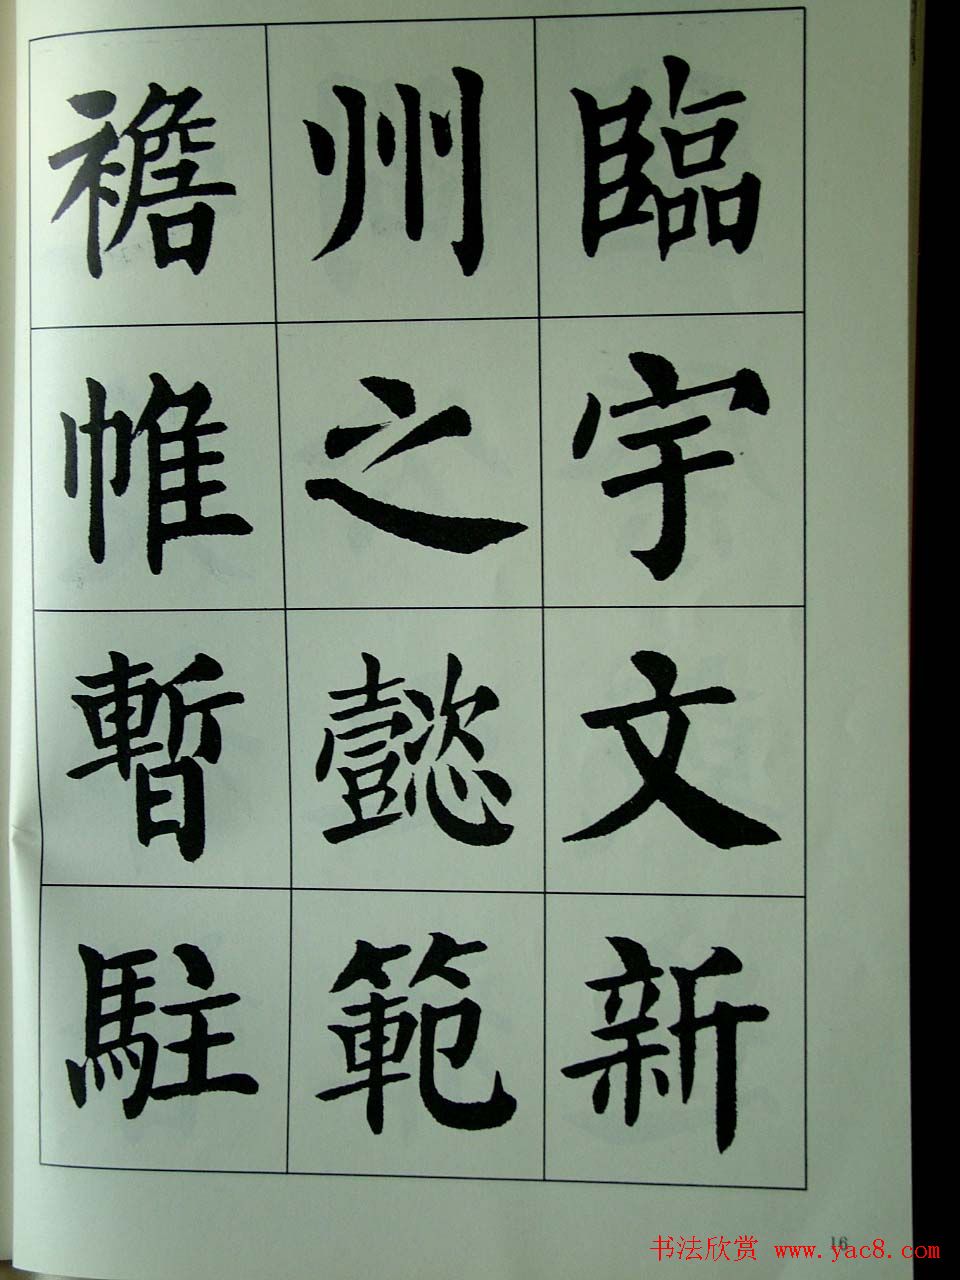 臨宇文新
州之懿範
襜帷暫駐
16
书法欣赏 www.yac8.com